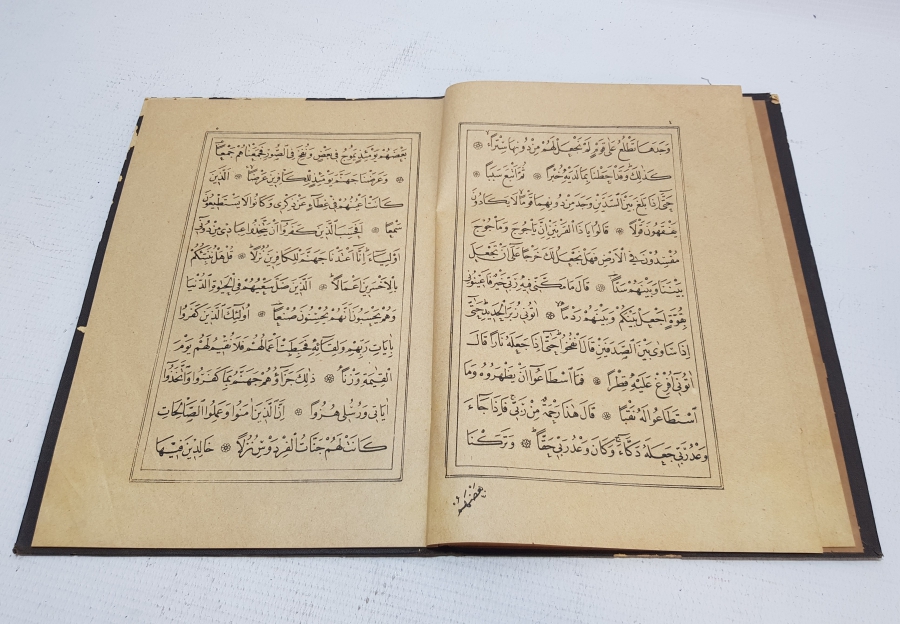 وَجَدَهَا تَطْلُعُ عَلٰى قَوْمٍ لَمْ نَجْعَلْ لَهُمْ مِنْ دُونِهَا سِتْرًا ۞
كَذٰلِكَ وَقَدْ اَحَطْنَا بِمَا لَدَيْهِ خُبْرًا ۞ ثُمَّ اَتْبَعَ سَبَبًا ۞
حَتّٰٓى اِذَا بَلَغَ بَيْنَ السَّدَّيْنِ وَجَدَ مِنْ دُونِهِمَا قَوْمًا لَا يَكَادُونَ
يَفْقَهُونَ قَوْلًا ۞ قَالُوا يَا ذَا الْقَرْنَيْنِ اِنَّ يَأْجُوجَ وَمَأْجُوجَ
مُفْسِدُونَ فِي الْاَرْضِ فَهَلْ نَجْعَلُ لَكَ خَرْجًا عَلٰٓى اَنْ تَجْعَلَ
بَيْنَنَا وَبَيْنَهُمْ سَدًّا ۞ قَالَ مَا مَكَّنّٖى فٖيهِ رَبّٖى خَيْرٌ فَاَعٖينُونٖى
بِقُوَّةٍ اَجْعَلْ بَيْنَكُمْ وَبَيْنَهُمْ رَدْمًا ۞ اٰتُونٖى زُبَرَ الْحَدٖيدِ حَتّٰٓى
اِذَا سَاوٰى بَيْنَ الصَّدَفَيْنِ قَالَ انْفُخُوا حَتّٰٓى اِذَا جَعَلَهُ نَارًا قَالَ
اٰتُونٖٓى اُفْرِغْ عَلَيْهِ قِطْرًا ۞ فَمَا اسْطَاعُٓوا اَنْ يَظْهَرُوهُ وَمَا
اسْتَطَاعُوا لَهُ نَقْبًا ۞ قَالَ هٰذَا رَحْمَةٌ مِنْ رَبّٖى فَاِذَا جَٓاءَ
وَعْدُ رَبّٖى جَعَلَهُ دَكَّٓاءَ وَكَانَ وَعْدُ رَبّٖى حَقًّا ۞ وَتَرَكْنَا
بَعْضَهُمْ
بَعْضَهُمْ يَوْمَئِذٍ يَمُوجُ فٖى بَعْضٍ وَنُفِخَ فِي الصُّورِ فَجَمَعْنَاهُمْ جَمْعًا
۞ وَعَرَضْنَا جَهَنَّمَ يَوْمَئِذٍ لِلْكَافِرٖينَ عَرْضًا ۞ اَلَّذٖينَ
كَانَتْ اَعْيُنُهُمْ فٖى غِطَٓاءٍ عَنْ ذِكْرٖى وَكَانُوا لَا يَسْتَطٖيعُونَ
سَمْعًا ۞ اَفَحَسِبَ الَّذٖينَ كَفَرُٓوا اَنْ يَتَّخِذُوا عِبَادٖى مِنْ دُونٖٓى
اَوْلِيَٓاءَ اِنَّٓا اَعْتَدْنَا جَهَنَّمَ لِلْكَافِرٖينَ نُزُلًا ۞ قُلْ هَلْ نُنَبِّئُكُمْ
بِالْاَخْسَرٖينَ اَعْمَالًا ۞ اَلَّذٖينَ ضَلَّ سَعْيُهُمْ فِي الْحَيٰوةِ الدُّنْيَا
وَهُمْ يَحْسَبُونَ اَنَّهُمْ يُحْسِنُونَ صُنْعًا ۞ اُولٰٓئِكَ الَّذٖينَ كَفَرُوا
بِاٰيَاتِ رَبِّهِمْ وَلِقَٓائِهٖ فَحَبِطَتْ اَعْمَالُهُمْ فَلَا نُقٖيمُ لَهُمْ يَوْمَ
الْقِيٰمَةِ وَزْنًا ۞ ذٰلِكَ جَزَٓاؤُهُمْ جَهَنَّمُ بِمَا كَفَرُوا وَاتَّخَذُٓوا
اٰيَاتٖى وَرُسُلٖى هُزُوًا ۞ اِنَّ الَّذٖينَ اٰمَنُوا وَعَمِلُوا الصَّالِحَاتِ
كَانَتْ لَهُمْ جَنَّاتُ الْفِرْدَوْسِ نُزُلًا ۞ خَالِدٖينَ فٖيهَا